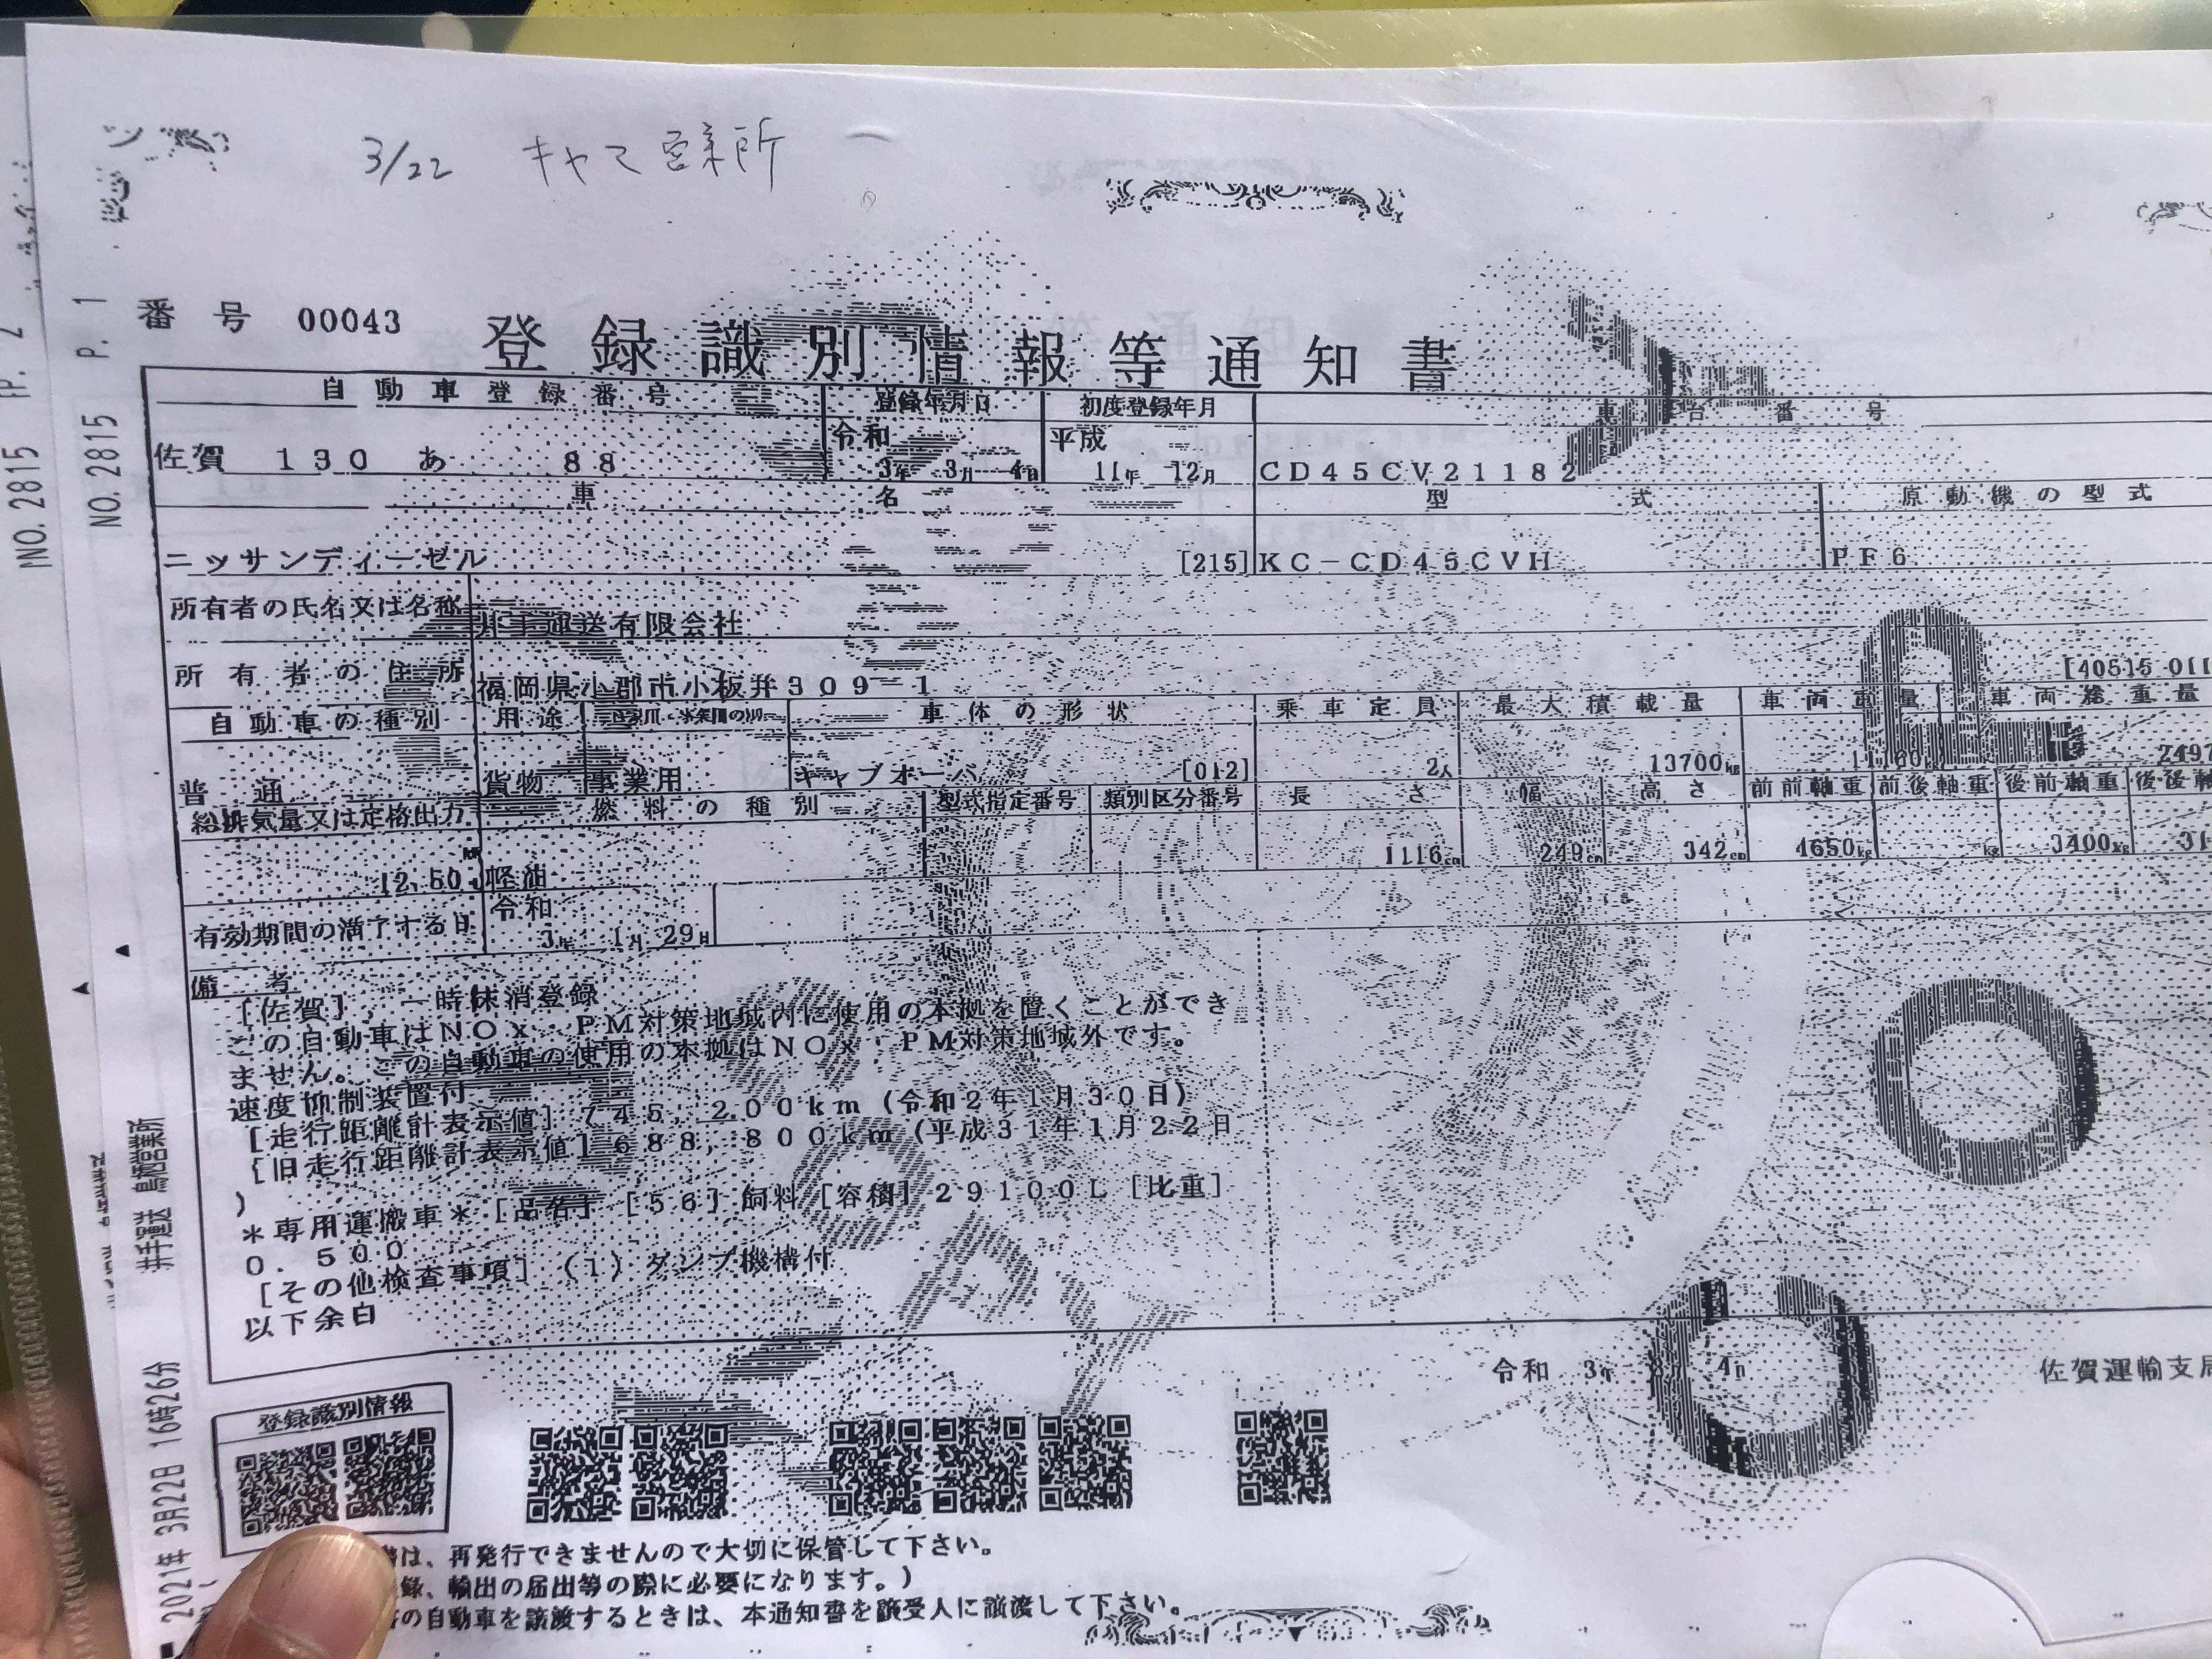 3/22 キャマ営業所
番号 00043
登録識別情報等通知書
自動車登録番号 登録年月日 初度登録年月 車台番号
佐賀 130 あ 88 令和 3年 3月 4日 平成 11年 12月 CD45CV21182
車名 型式 原動機の型式
ニッサンディーゼル [215] KC-CD45CVH PF6
所有者の氏名又は名称 井手運送有限会社
所有者の住所 福岡県小郡市小板井309-1 [40515 011
自動車の種別 用途 自家用・事業用の別 車体の形状 乗車定員 最大積載量 車両重量 車両総重量
普通 貨物 事業用 キャブオーバ [012] 2人 13700kg 11160 2497
総排気量又は定格出力 燃料の種別 型式指定番号 類別区分番号 長さ 幅 高さ 前前軸重 前後軸重 後前軸重 後後軸
12.50 軽油 1116cm 249cm 342cm 4650kg kg 3400kg 31
有効期間の満了する日 令和 3年 1月 29日
備考
[佐賀], 一時抹消登録
この自動車はNOx・PM対策地域内に使用の本拠を置くことができ
ません。この自動車の使用の本拠はNOx・PM対策地域外です。
速度抑制装置付
[走行距離計表示値] 745,200km (令和2年1月30日)
[旧走行距離計表示値] 688,800km (平成31年1月22日
)
*専用運搬車* [品名] [56] 飼料 [容積] 29100L [比重]
0.500
[その他検査事項] (1) ダンプ機構付
以下余白
令和 3年 4日 佐賀運輸支局
登録識別情報
は、再発行できませんので大切に保管して下さい。
録、輸出の届出等の際に必要になります。)
の自動車を譲渡するときは、本通知書を譲受人に譲渡して下さい。
2021年 3月22日 16時26分 井手運送 鳥栖営業所 NO. 2815 P. 1
NO. 2815 P. 2